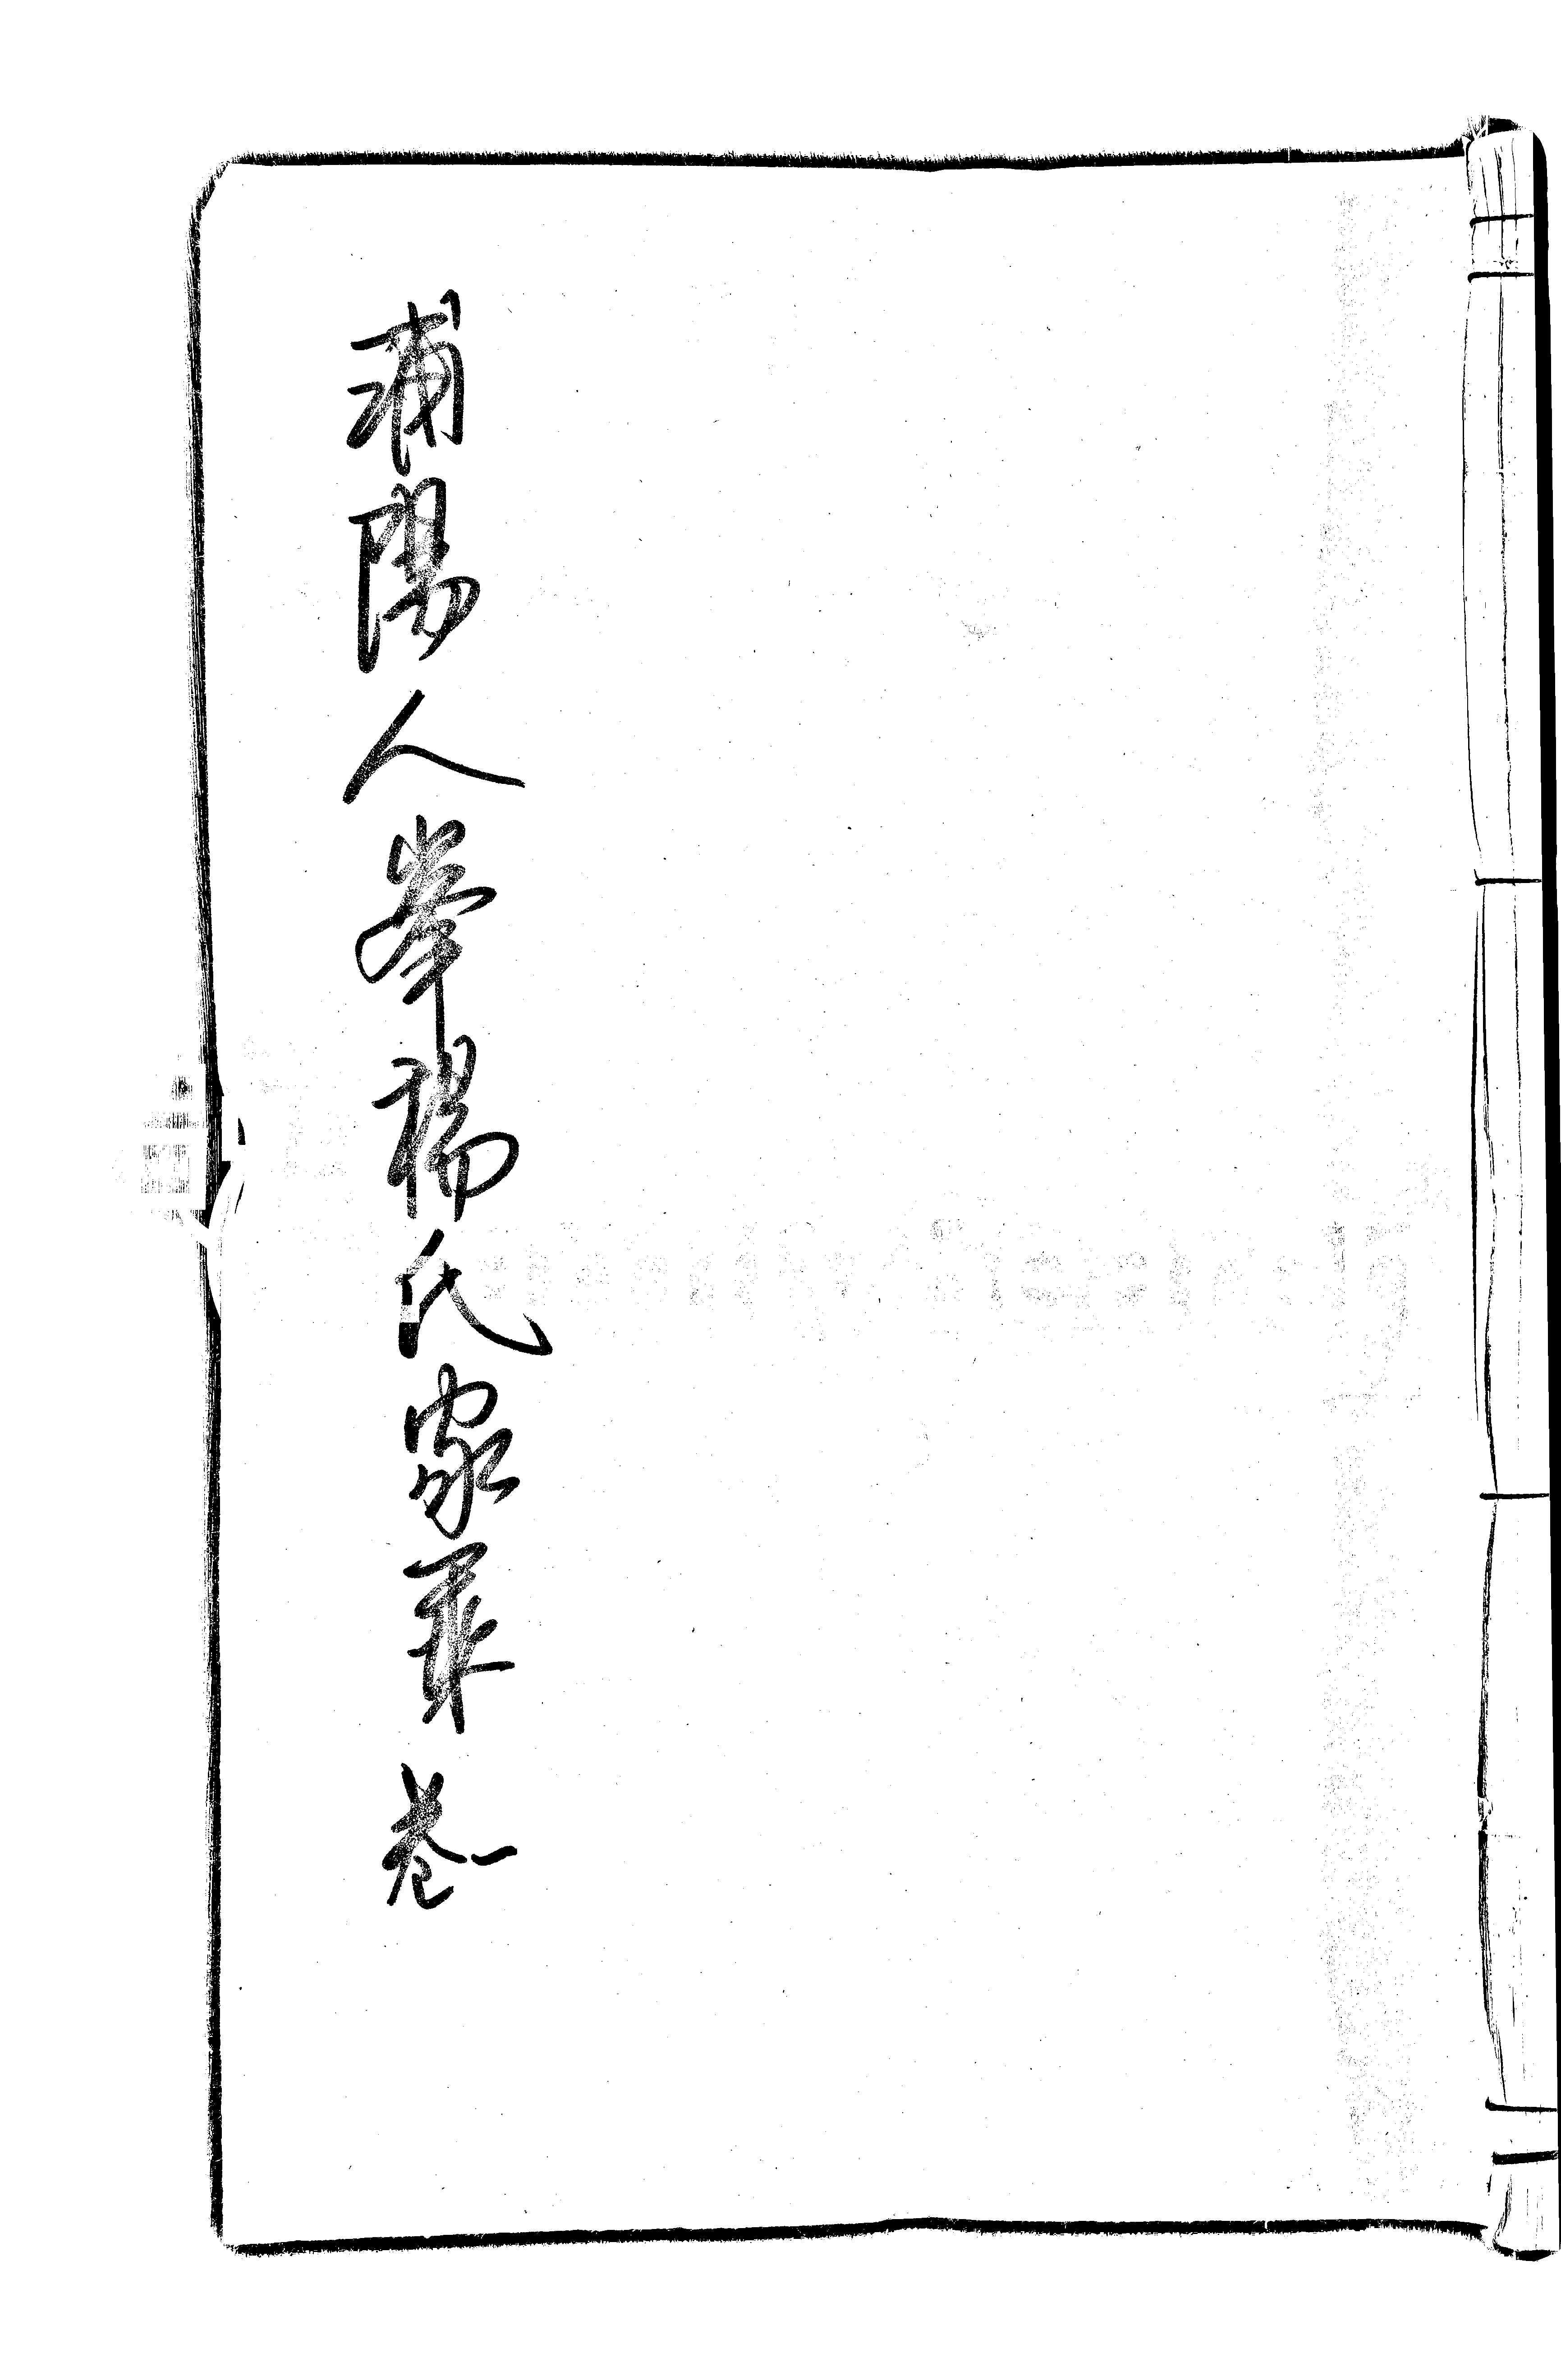 浦陽人峯楊氏家乘 卷一